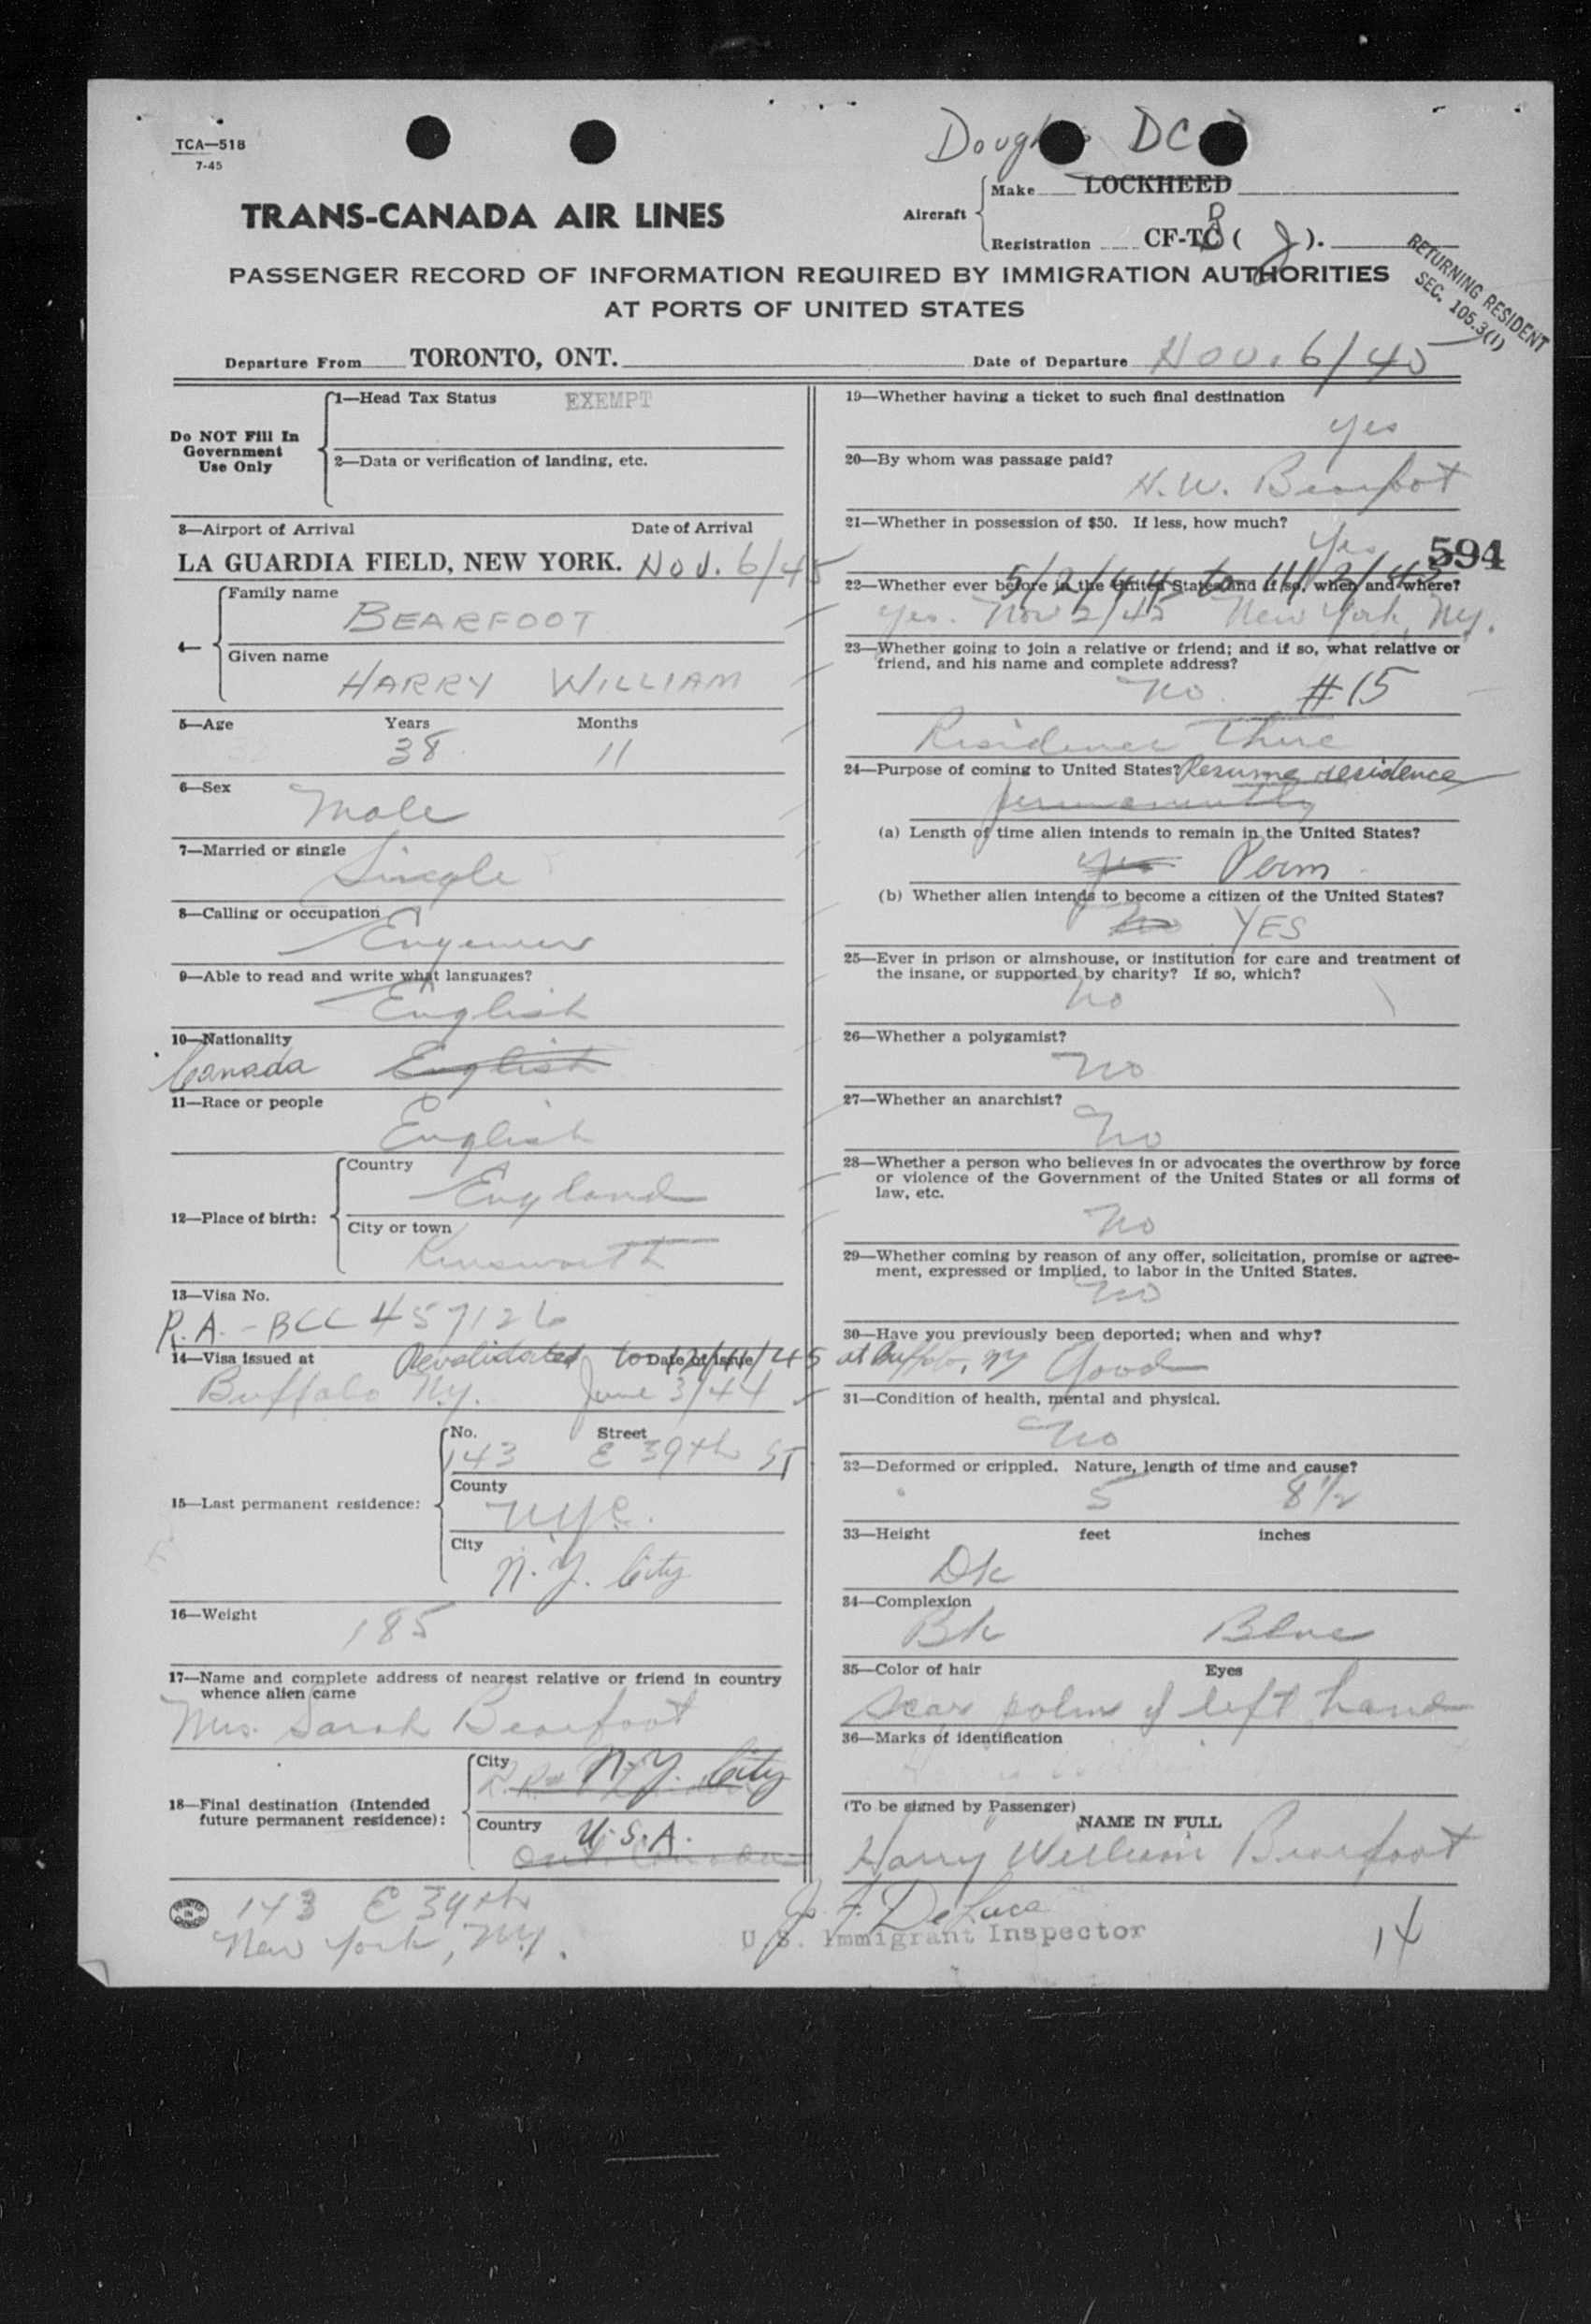 TCA—518
7-45
Douglas DC3
TRANS-CANADA AIR LINES
Aircraft
Make LOCKHEED
Registration CF-TC ( J ).
PASSENGER RECORD OF INFORMATION REQUIRED BY IMMIGRATION AUTHORITIES
AT PORTS OF UNITED STATES
RETURNING RESIDENT
SEC. 105.3(1)
Departure From TORONTO, ONT. Date of Departure Nov. 6/45
Do NOT Fill In
Government
Use Only
1—Head Tax Status EXEMPT
2—Data or verification of landing, etc.
3—Airport of Arrival Date of Arrival
LA GUARDIA FIELD, NEW YORK. Nov. 6/45
4—
Family name
BEARFOOT
Given name
HARRY WILLIAM
5—Age Years Months
38 11
6—Sex
Male
7—Married or single
Single
8—Calling or occupation
Engineer
9—Able to read and write what languages?
English
10—Nationality
Canada English
11—Race or people
English
12—Place of birth:
Country
England
City or town
Kensworth
13—Visa No.
R.A. - BCC 457126
14—Visa issued at Date of issue
Revalidated to 12/11/45 at Buffalo, NY
Buffalo N.Y. June 3/44
15—Last permanent residence:
No. Street
143 E 39th ST
County
N.Y.C.
City
N.Y. City
16—Weight
185
17—Name and complete address of nearest relative or friend in country
whence alien came
Mrs. Sarah Bearfoot
18—Final destination (Intended
future permanent residence):
City
N.Y. City
Country
U.S.A.
Ont. Canada
PRINTED IN CANADA
143 E 39th
New York, N.Y.
19—Whether having a ticket to such final destination
yes
20—By whom was passage paid?
H.W. Bearfoot
21—Whether in possession of $50. If less, how much?
Yes
594
5/2/44 to 11/2/45
22—Whether ever before in the United States and if so, when and where?
yes. Nov 2/45 New York, N.Y.
23—Whether going to join a relative or friend; and if so, what relative or
friend, and his name and complete address?
No #15
Residence There
24—Purpose of coming to United States? Resume residence
permanently
(a) Length of time alien intends to remain in the United States?
yes Perm
(b) Whether alien intends to become a citizen of the United States?
No YES
25—Ever in prison or almshouse, or institution for care and treatment of
the insane, or supported by charity? If so, which?
No
26—Whether a polygamist?
No
27—Whether an anarchist?
No
28—Whether a person who believes in or advocates the overthrow by force
or violence of the Government of the United States or all forms of
law, etc.
No
29—Whether coming by reason of any offer, solicitation, promise or agree-
ment, expressed or implied, to labor in the United States.
No
30—Have you previously been deported; when and why?
Good
31—Condition of health, mental and physical.
No
32—Deformed or crippled. Nature, length of time and cause?
5 8 1/2
33—Height feet inches
Dk
34—Complexion
Bk Blue
35—Color of hair Eyes
Scar palm of left hand
36—Marks of identification
(To be signed by Passenger)
NAME IN FULL
Harry William Bearfoot
J. F. DeLuca
U.S. Immigrant Inspector
14